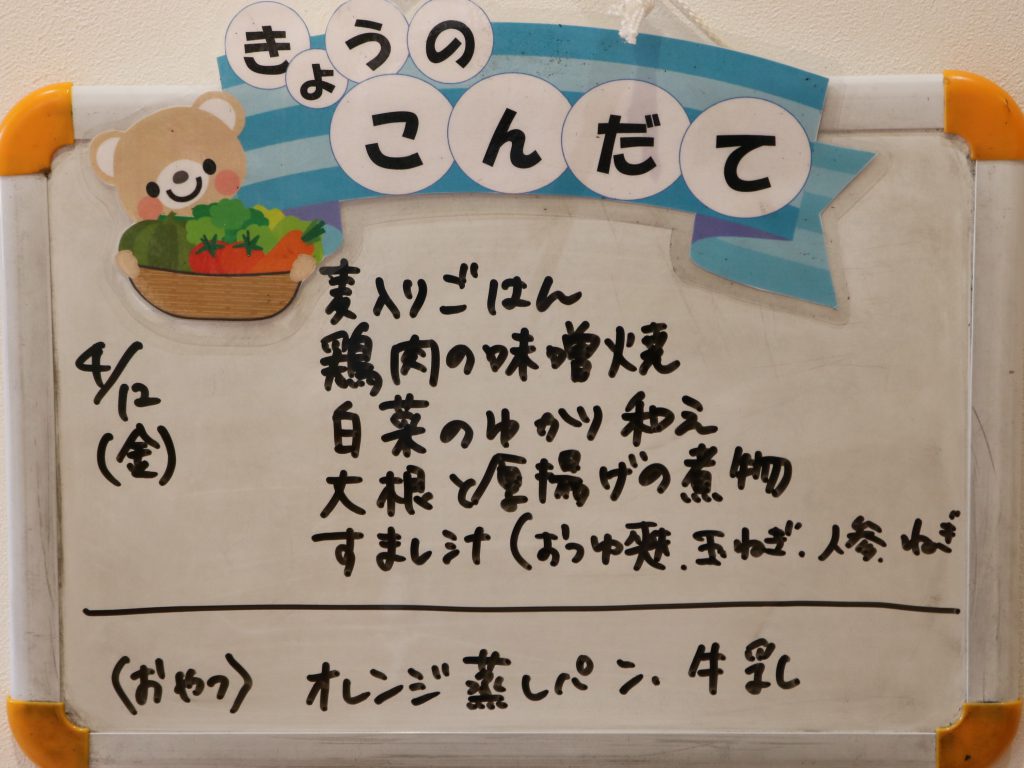 きょうの
こんだて
4/12
(金)
麦入りごはん
鶏肉の味噌焼
白菜のゆかり和え
大根と厚揚げの煮物
すまし汁(おつゆ麩、玉ねぎ、人参、ねぎ
(おやつ) オレンジ蒸しパン、牛乳